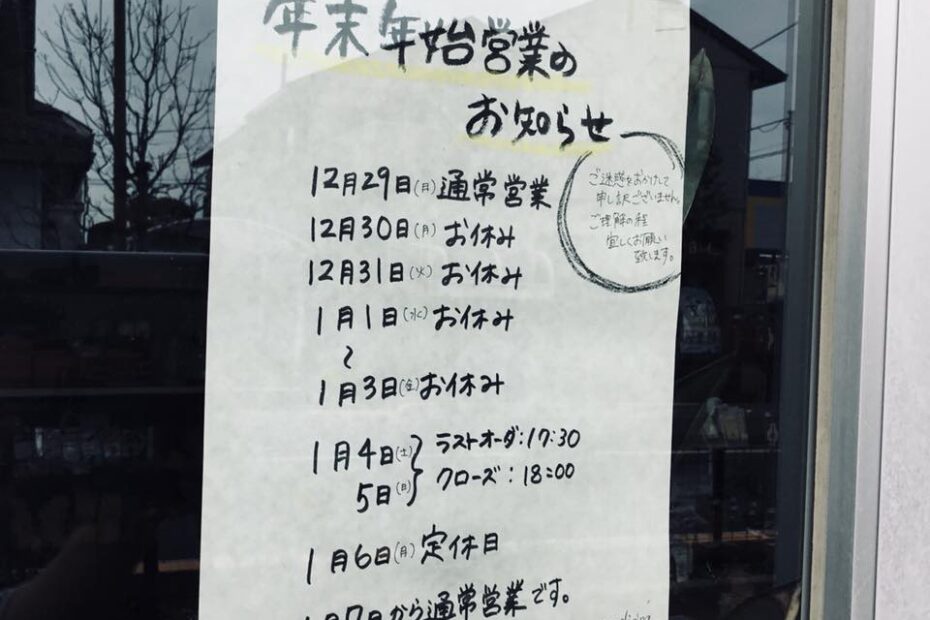 年末年始営業の
お知らせ
12月29日(月)通常営業
12月30日(月)お休み
12月31日(火)お休み
1月1日(水)お休み
〜
1月3日(金)お休み
1月4日(土)
5日(日)
ラストオーダ:17:30
クローズ:18:00
1月6日(月)定休日
1月7日から通常営業です。
ご迷惑をおかけして
申し訳ございません。
ご理解の程
宜しくお願い
致します。